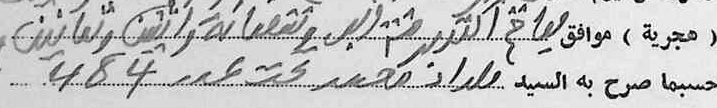 ( هجرية ) موافق يوافق أكتوبر سنة ألف وتسعمائة واثنين وثمانين
حسبما صرح به السيد مراد محمد تحت عدد 484